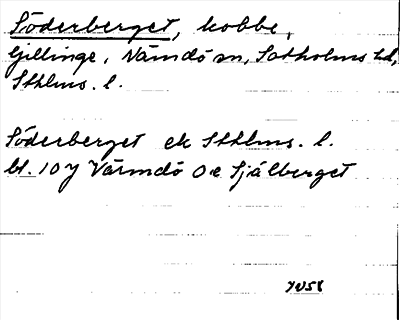 Söderberget, kobbe,
Gillinge, Värmdö sn, Sotholms hd,
Sthlms. l.
Söderberget ek Sthlms. l.
bl. 10 y Värmdö O e Sjålberget